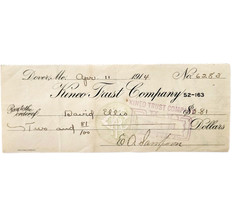 Dover, Me. Apr 11 1914 No. 6283
Kineo Trust Company 52-163
Pay to the order of David Ellis $2.81
Two and 81/100 Dollars